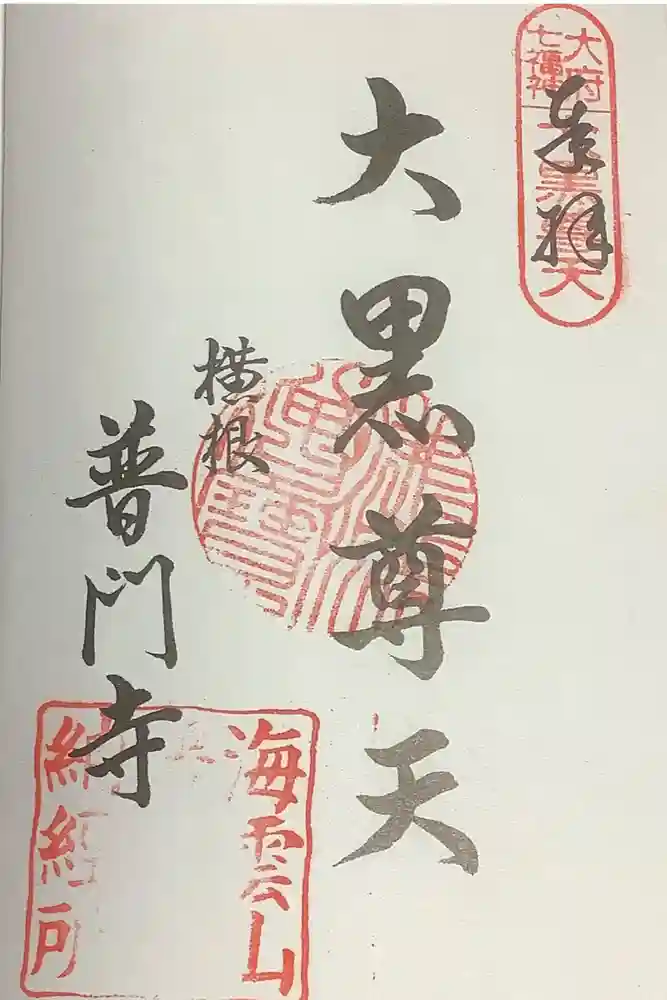 奉拝
大府
七福神
大黒尊天
大黒尊天
横根
普門寺
海雲山
納経所